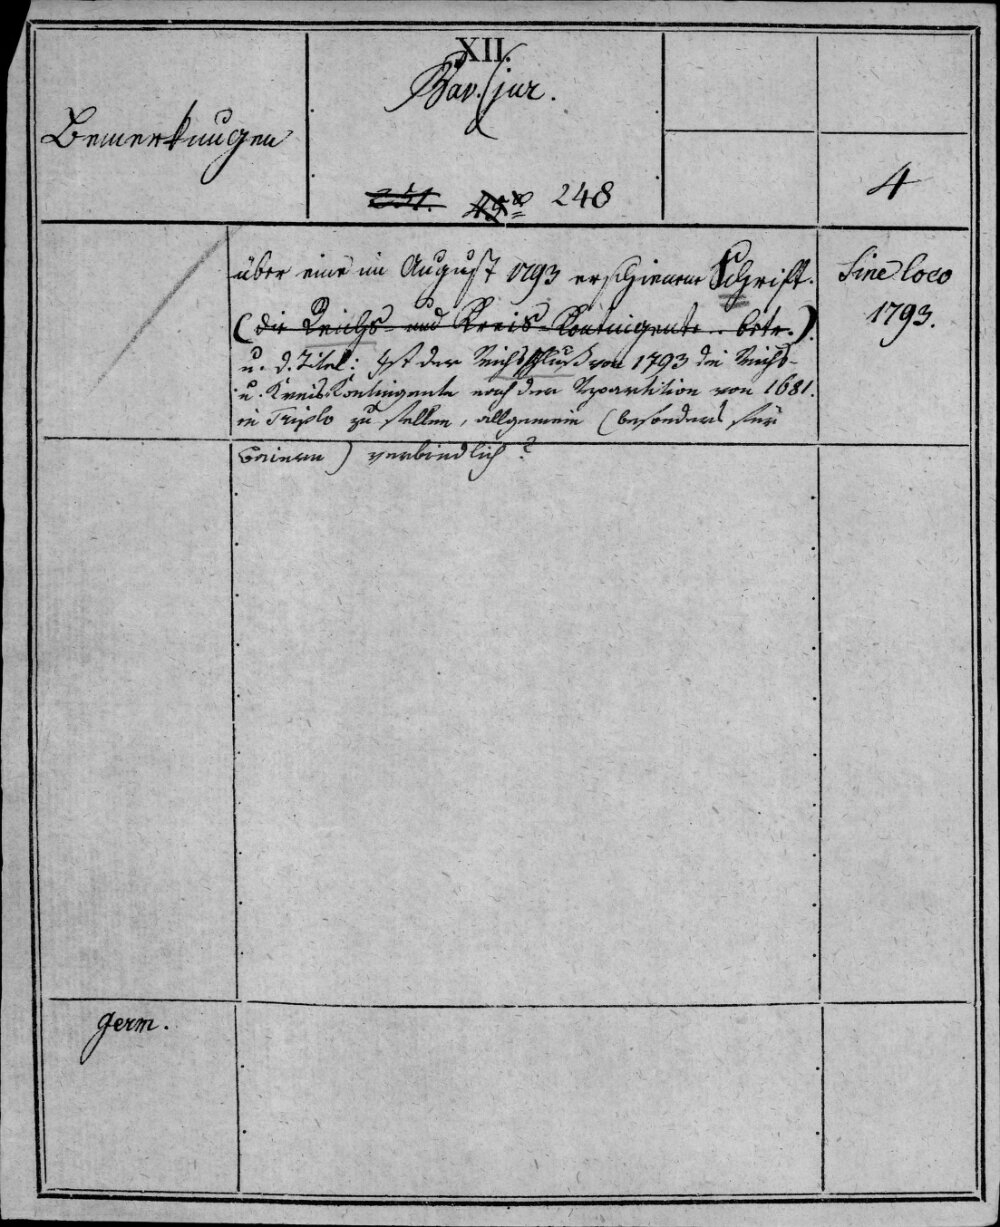 XII.
Bav. jur.
Bemerkungen
4
231. 45 m 248
über eine im August 1793 erschienene Schrift.
Sine loco
1793.
(die Reichs- und Kreis-Kontingente .. betr.)
u. d. Titel: Ist der Reichsschluß von 1793 die Reichs-
u. Kreis-Kontingente nach der Repartition von 1681.
in Triplo zu stellen, allgemein (besonders für
Baiern) verbindlich?
germ.